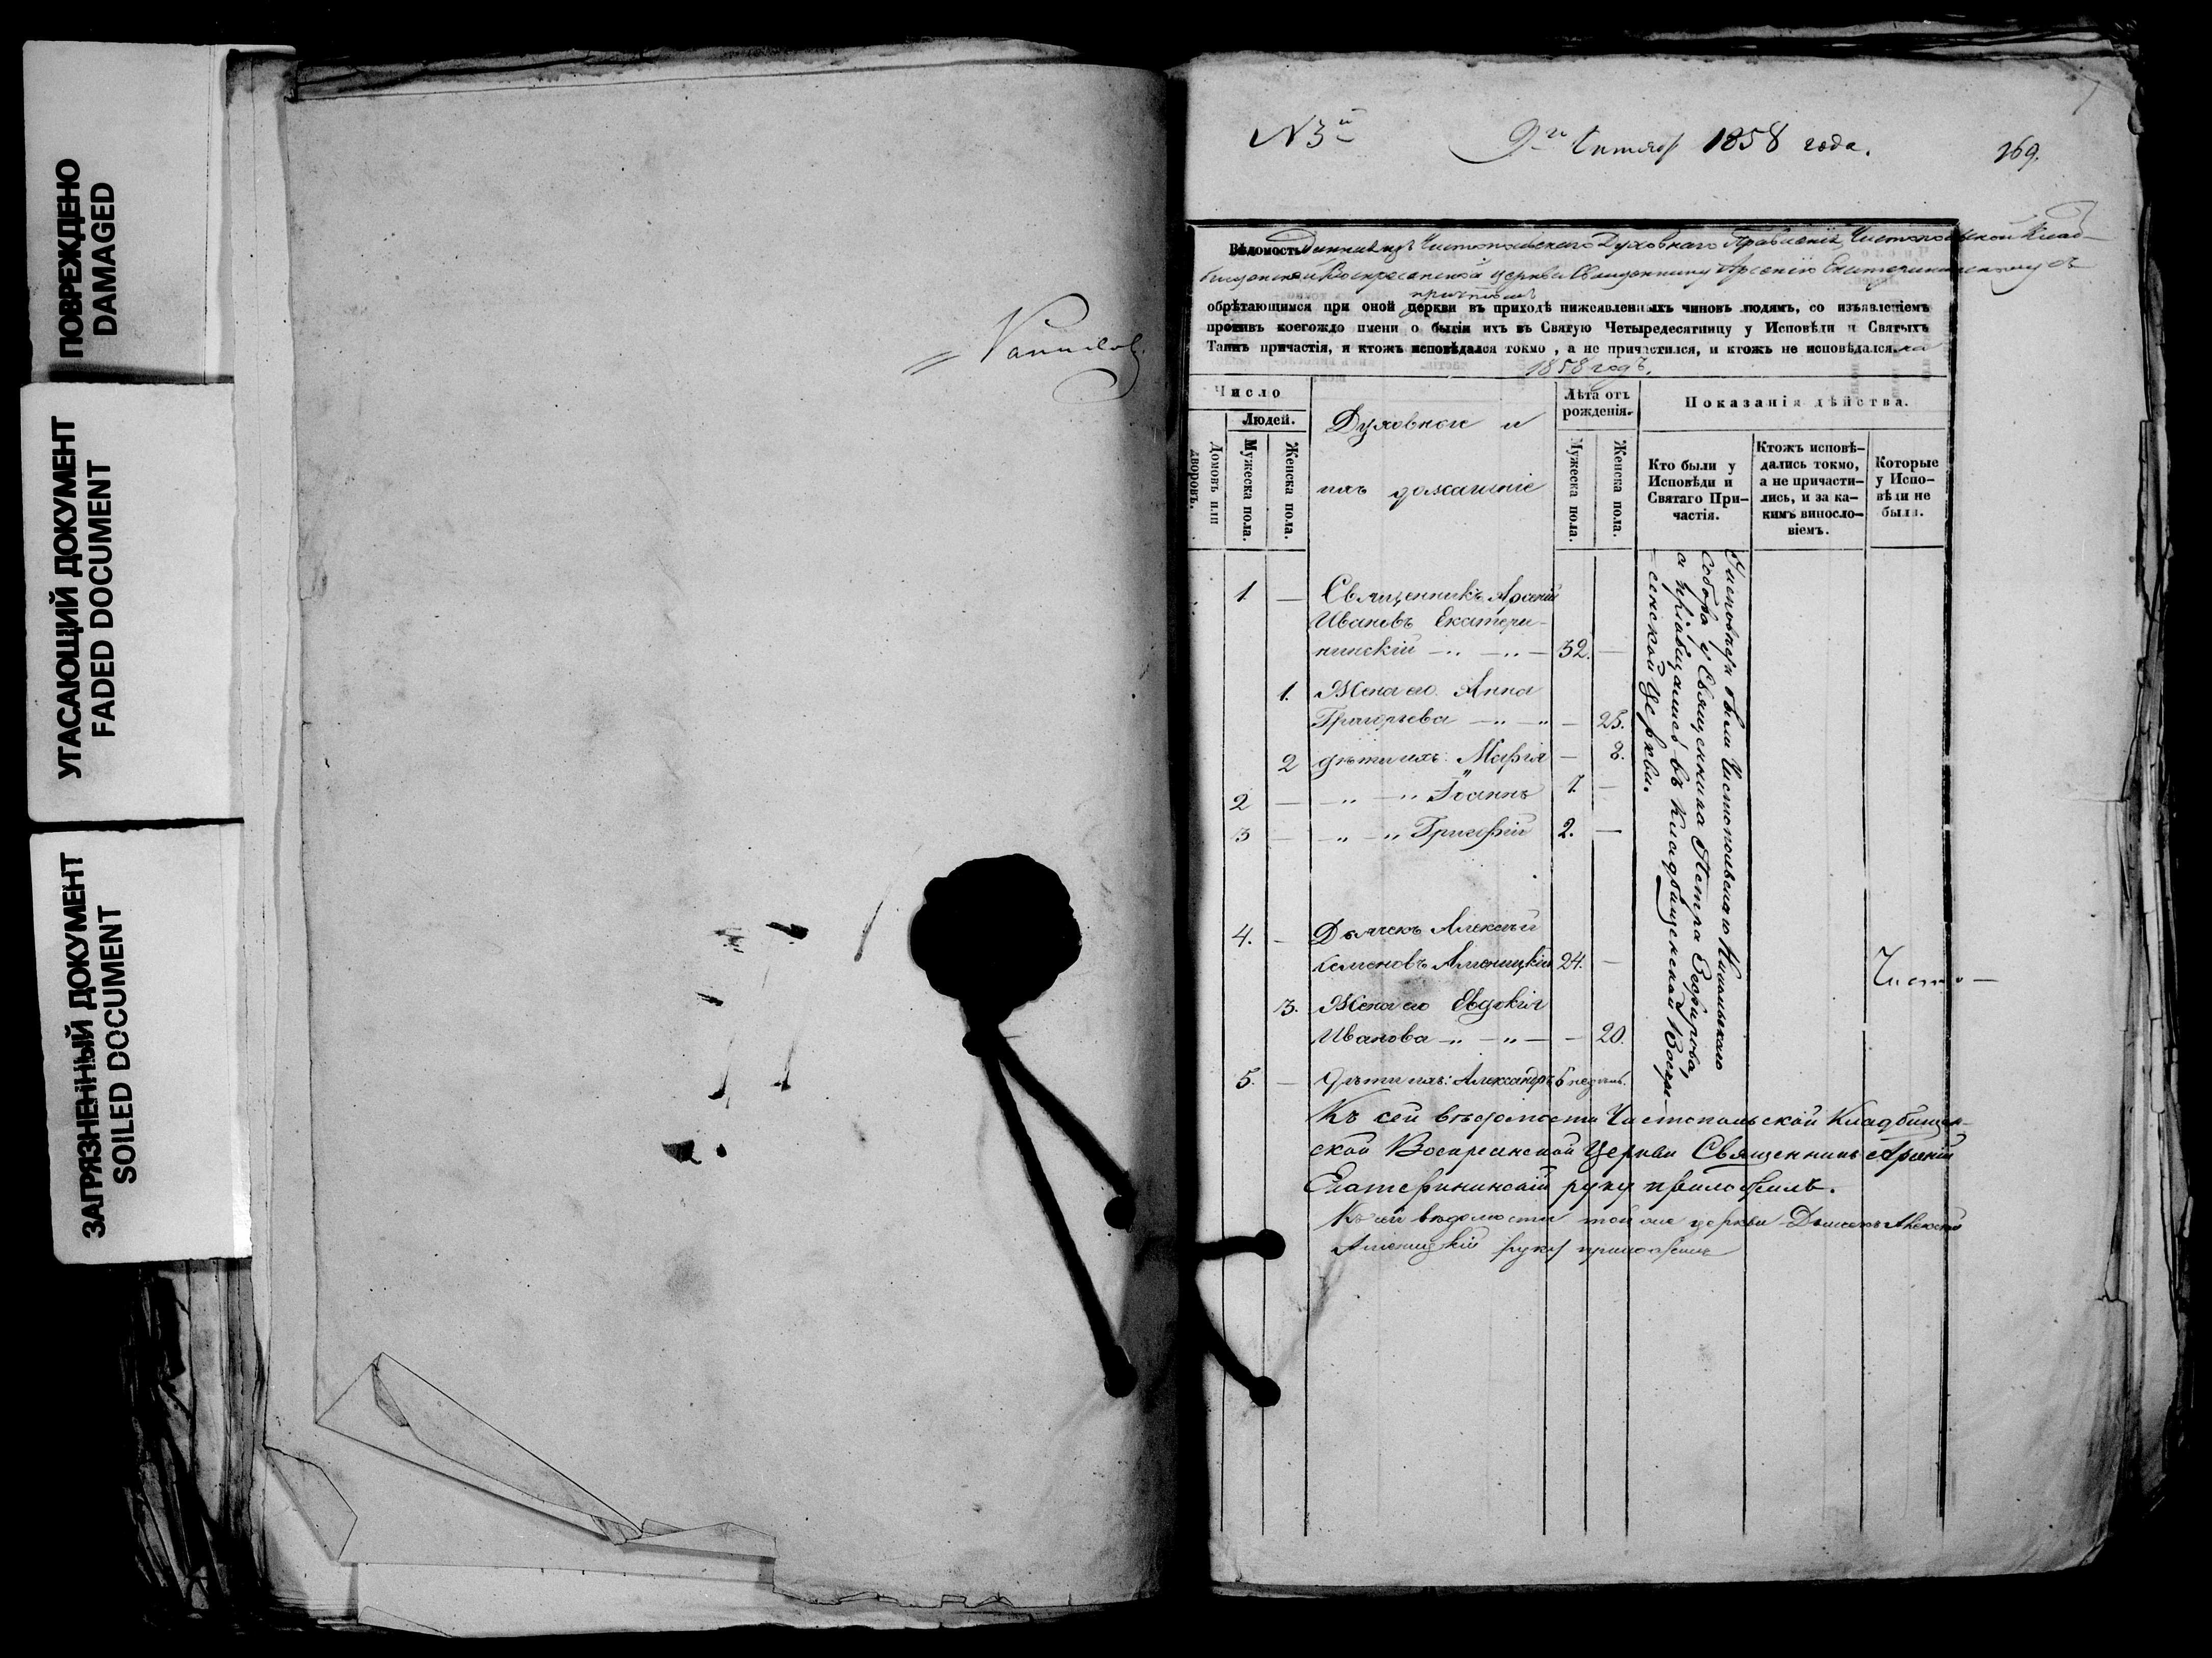 ПОВРЕЖДЕНО
DAMAGED
УГАСАЮЩИЙ ДОКУМЕНТ
FADED DOCUMENT
ЗАГРЯЗНЕННЫЙ ДОКУМЕНТ
SOILED DOCUMENT
N 3й
9го 1858 года.
Вѣдомость Данная изъ Чистопольскаго Духовнаго Правленія, Чистопольской Клад-
бищенской Воскресенской церкви Священнику Арсенію Екатерининскому съ
причтомъ
обрѣтающимся при оной церкви въ приходѣ нижеявленныхъ чиновъ людямъ, со изъявленіемъ
противъ коегождо имени о бытіи ихъ въ Святую Четыредесятницу у Исповѣди и Святыхъ
Таинъ причастія, и ктожъ исповѣдался токмо, а не причастился, и ктожъ не исповѣдался. на
1858 годъ.
Число
Людей.
Домовъ или дворовъ.
Мужеска пола.
Женска пола.
Духовные и
ихъ домашніе
Лѣта отъ
рожденія.
Мужеска пола.
Женска пола.
Показанія дѣйства.
Кто были у
Исповѣди и
Святаго При-
частія.
Ктожъ исповѣ-
дались токмо,
а не причасти-
лись, и за ка-
кимъ винослo-
віемъ.
Которые
у Испо-
вѣди не
были.
1 — Священникъ Арсеній
Ивановъ Екатери-
нинскій — 32. —
1. Жена его Анна
Григорьева — 25.
2 дѣти ихъ: Марія — 8.
2 — Іоаннъ 7. —
3 — Грифій 2. —
4. — Дьячекъ Алексѣй
Семеновъ 24. —
3. Жена его Евдокія
Иванова — 20.
5. — Дѣти ихъ: Александръ 6 недѣль.
Исповѣди были Чистопольскаго Никольскаго
Собора у Священника Петра
а пріобщались въ Кладбищенской Воскре-
сенской Церкви.
Чисто —
Къ сей вѣдомости Чистопольской Кладбищен-
ской Воскресенской Церкви Священникъ Арсеній
Екатерининскій руку приложилъ.
Къ сей вѣдомости той же церкви Дьячекъ Алексѣй
руку приложилъ